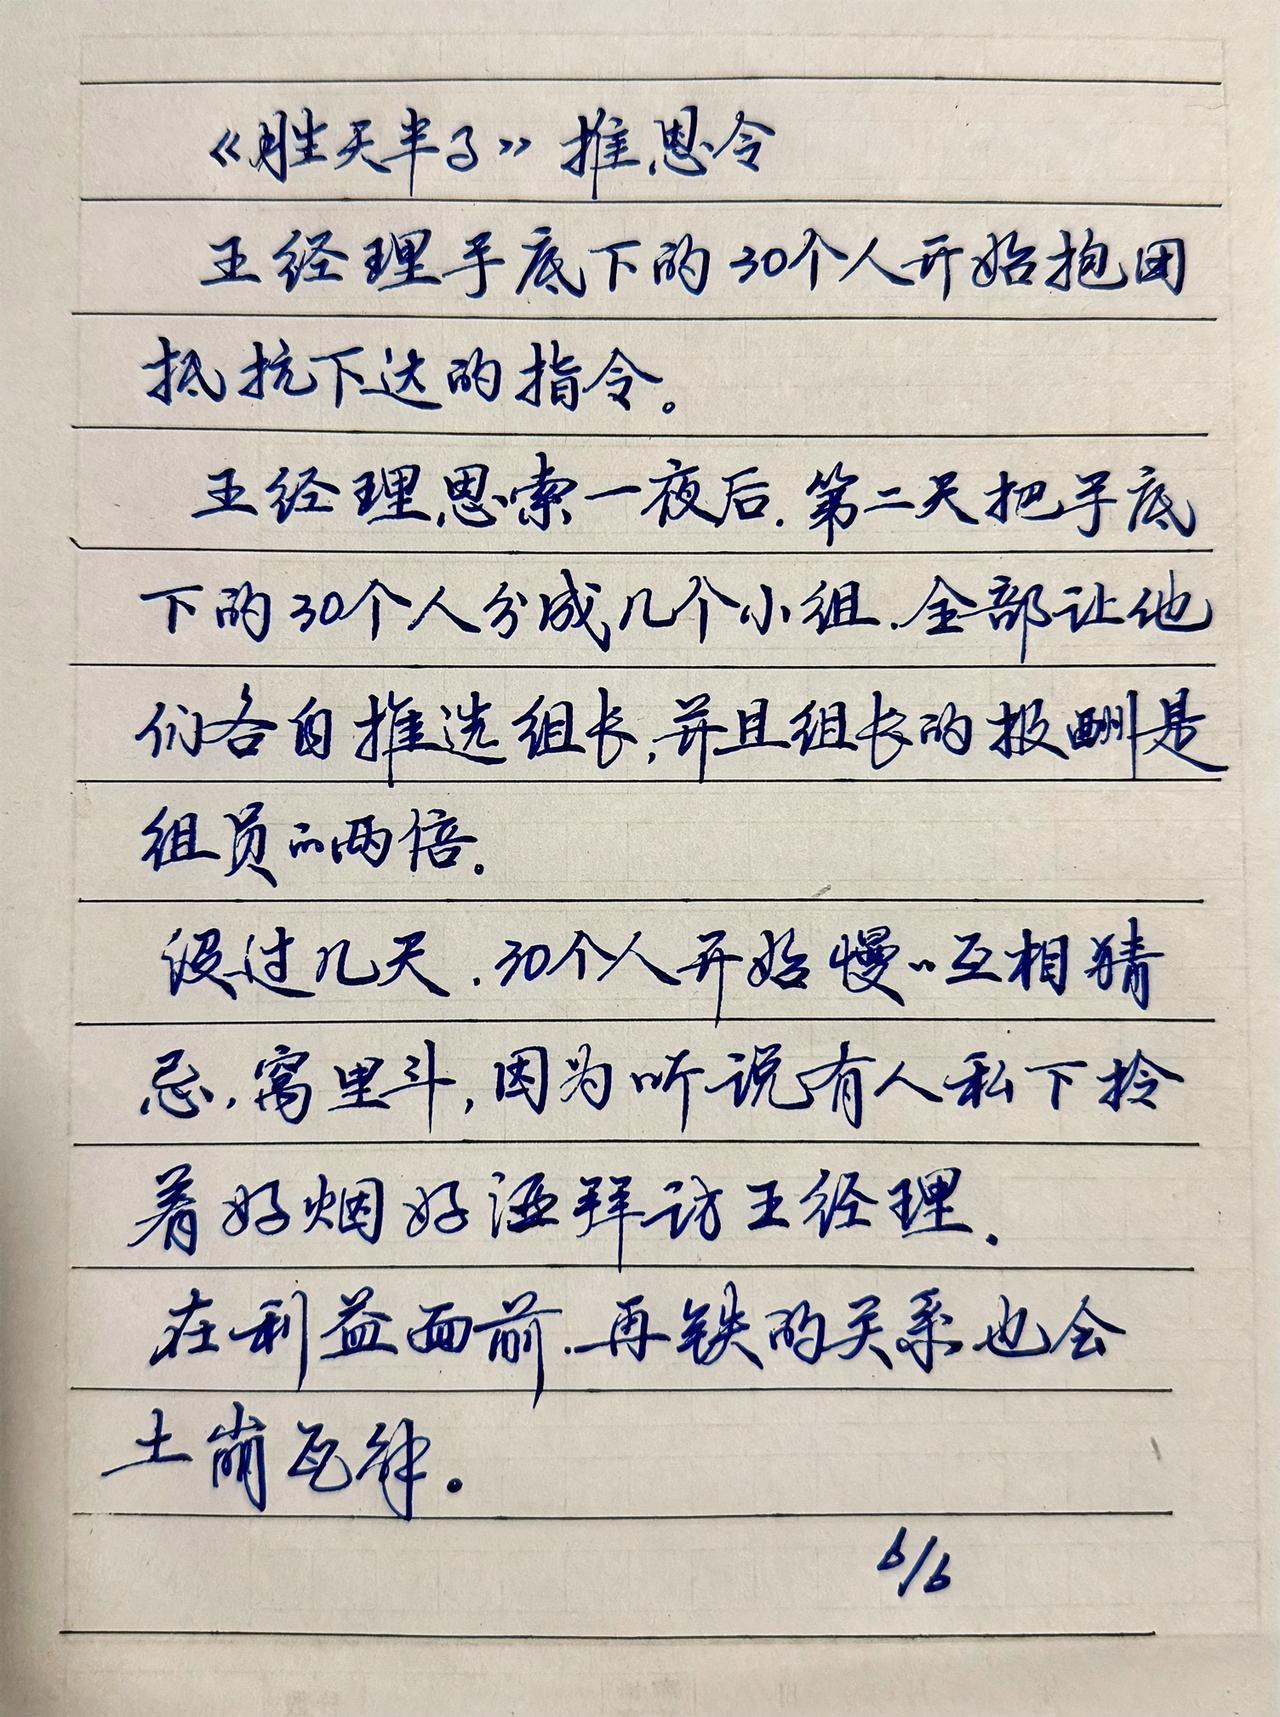 《胜天半子》推恩令
王经理手底下的30个人开始抱团
抵抗下达的指令。
王经理思索一夜后.第二天把手底
下的30个人分成几个小组.全部让他
们各自推选组长,并且组长的报酬是
组员的两倍。
没过几天.30个人开始慢〃互相猜
忌,窝里斗,因为听说有人私下拎
着好烟好酒拜访王经理.
在利益面前.再铁的关系也会
土崩瓦解。
6/6